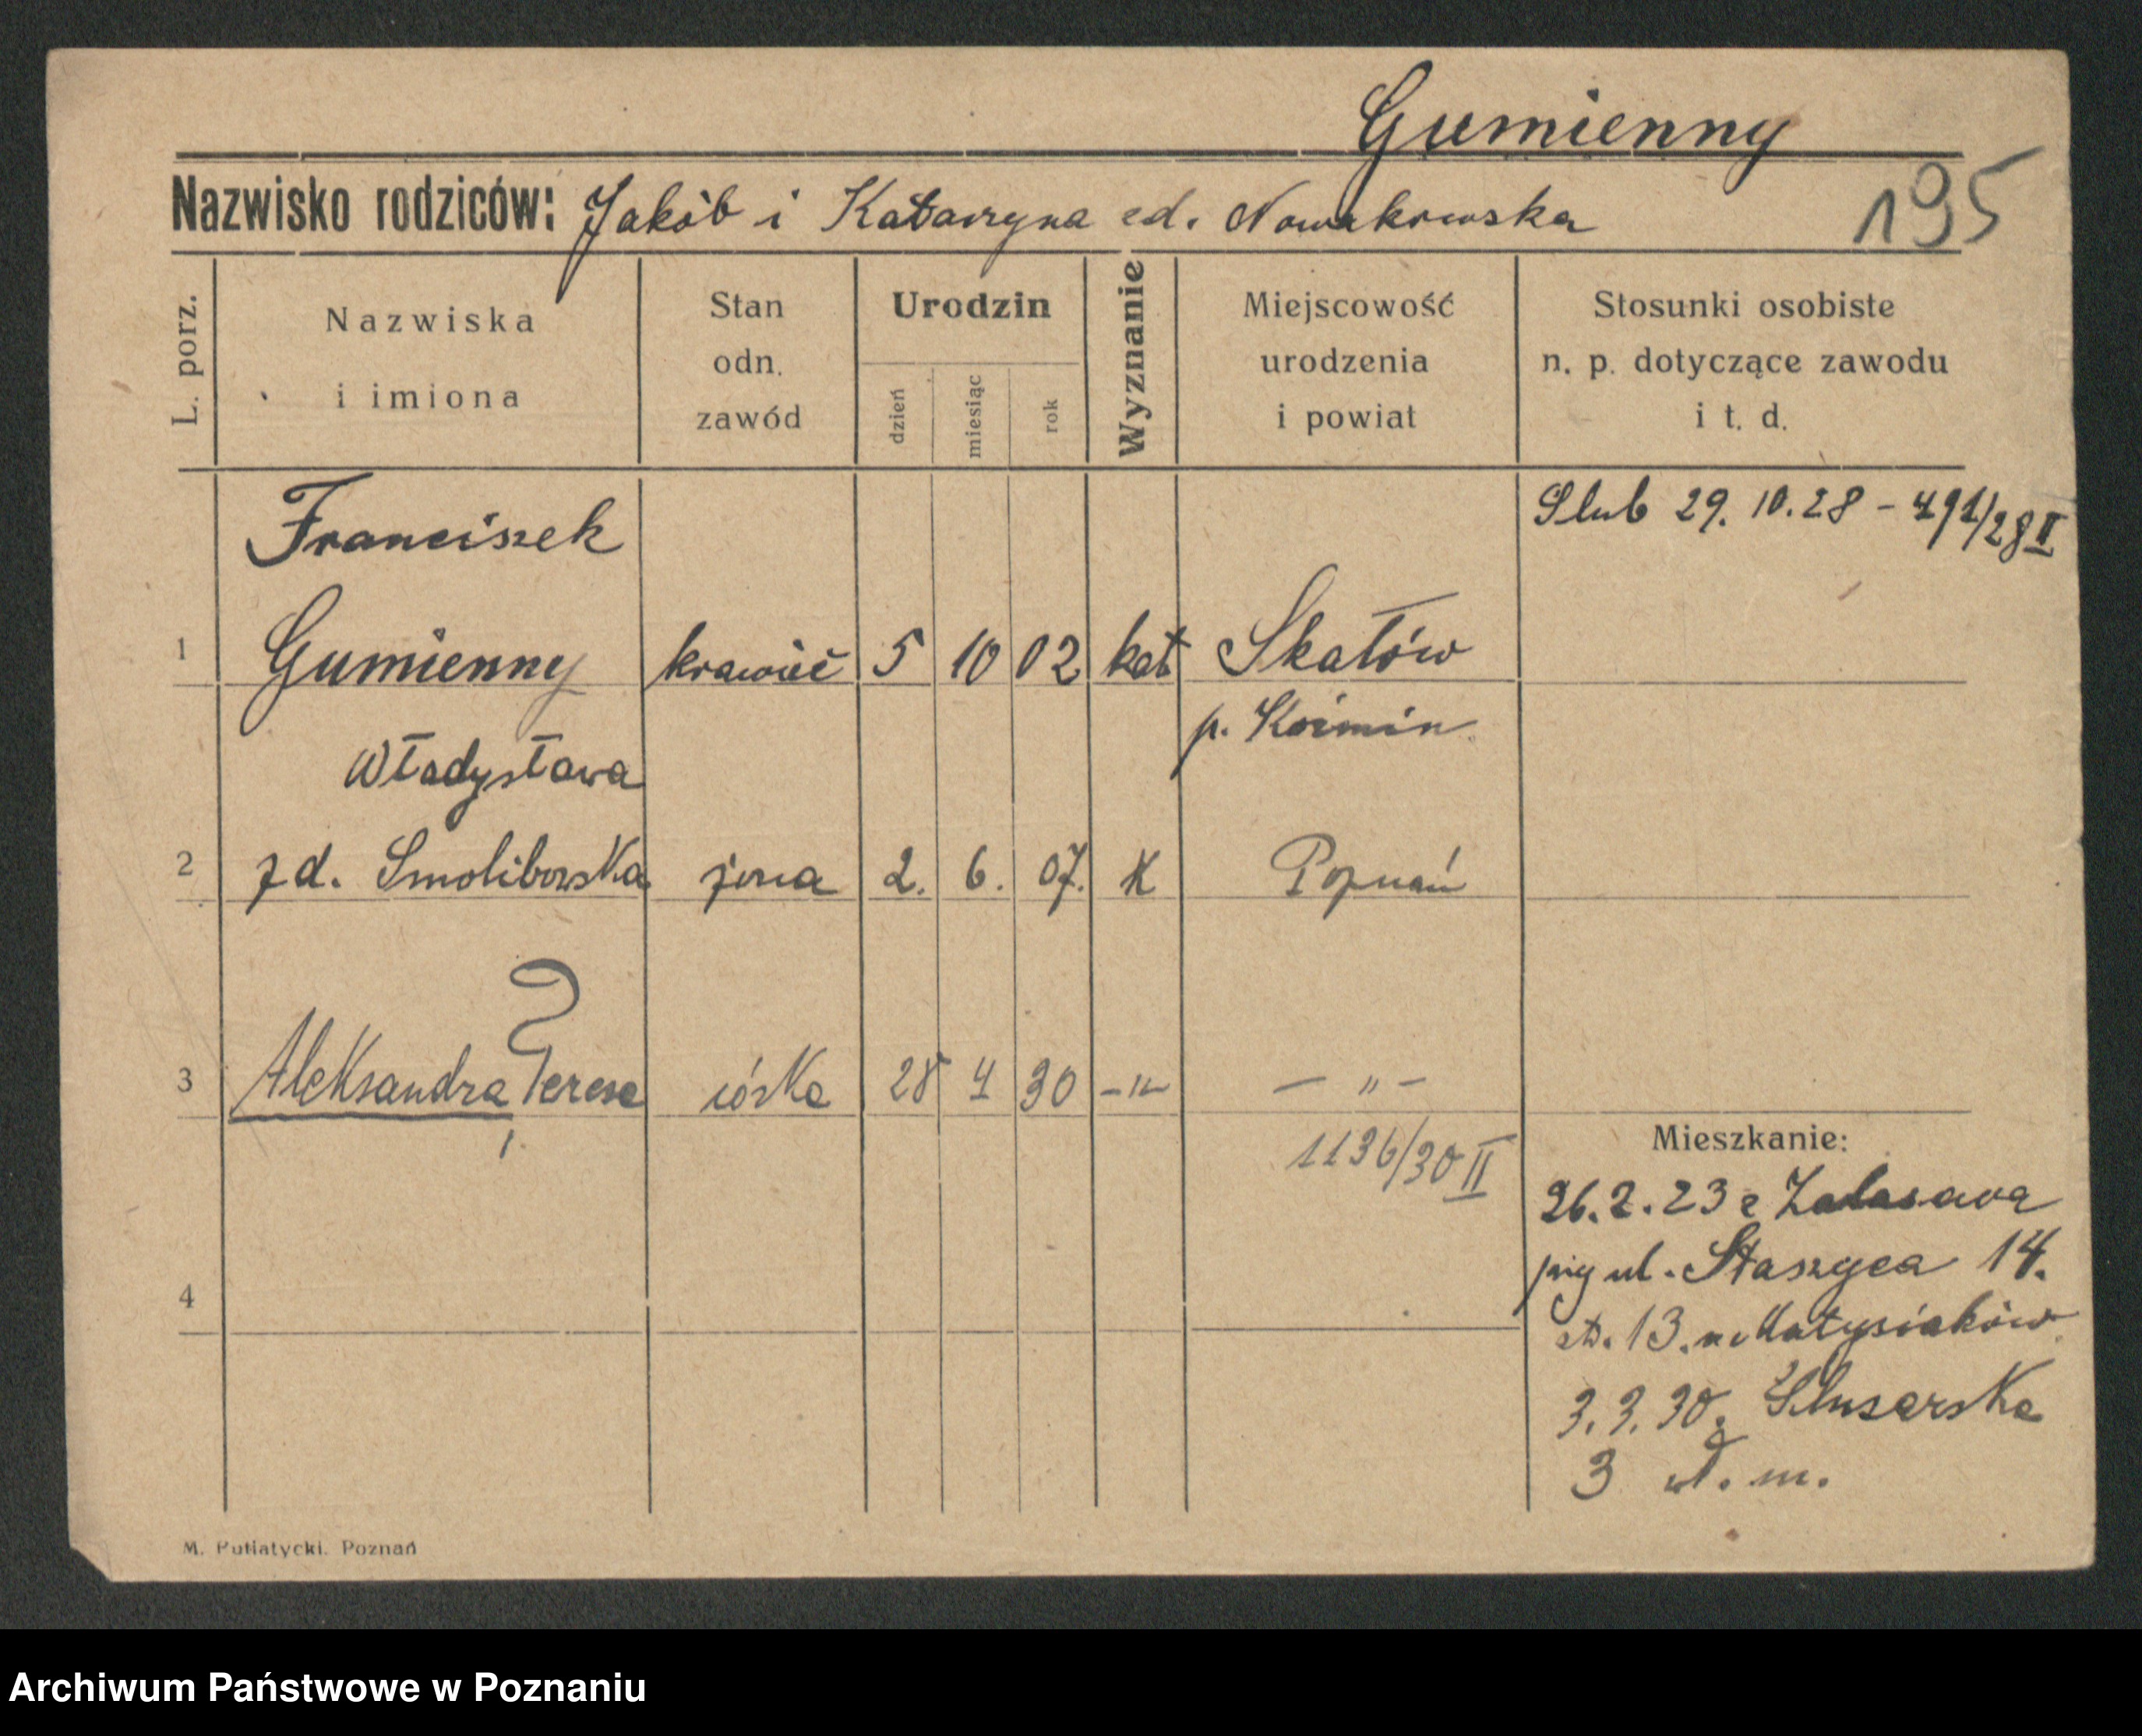 Gumienny
195
Nazwisko rodziców: Jakób i Katarzyna zd. Nowakowska
L. porz.
Nazwiska
i imiona
Stan
odn.
zawód
Urodzin
dzień
miesiąc
rok
Wyznanie
Miejscowość
urodzenia
i powiat
Stosunki osobiste
n. p. dotyczące zawodu
i t. d.
Franciszek Slub 29. 10. 28 - 491/28 II
1 Gumienny krawiec 5 10 02 kat Skałów
p. Koźmin
Władysława
2 zd. Smolibowska żona 2. 6. 07. K Poznań
3 Aleksandra Teresa córka 28 4 30 - " - - " -
1136/30 II
Mieszkanie:
26. 2. 23 z Zalasawa
przy ul. Staszyca 14.
13. u Matysiaków
3. 3. 30. Ślusarska
3 wł. m.
4
M. Putiatycki. Poznań
Archiwum Państwowe w Poznaniu